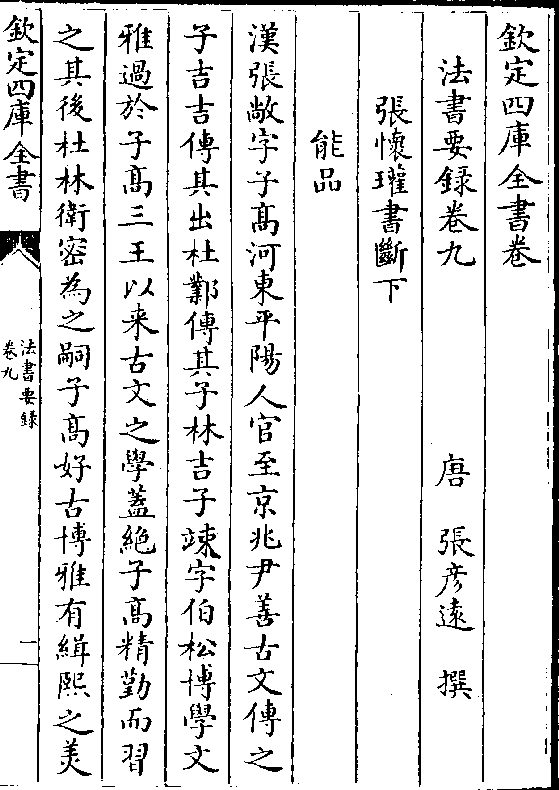 欽定四庫全書卷
法書要錄卷九　唐　張彦遠　撰
張懷瓘書斷下
能品
漢張敞字子髙河東平陽人官至京兆尹善古文傳之
子吉吉傳其出杜鄴傳其子林吉子竦字伯松博學文
雅過於子髙三王以来古文之學蓋絶子髙精勤而習
之其後杜林衛密為之嗣子髙好古博雅有緝熙之美
欽定四庫全書
法書要録
卷九
一